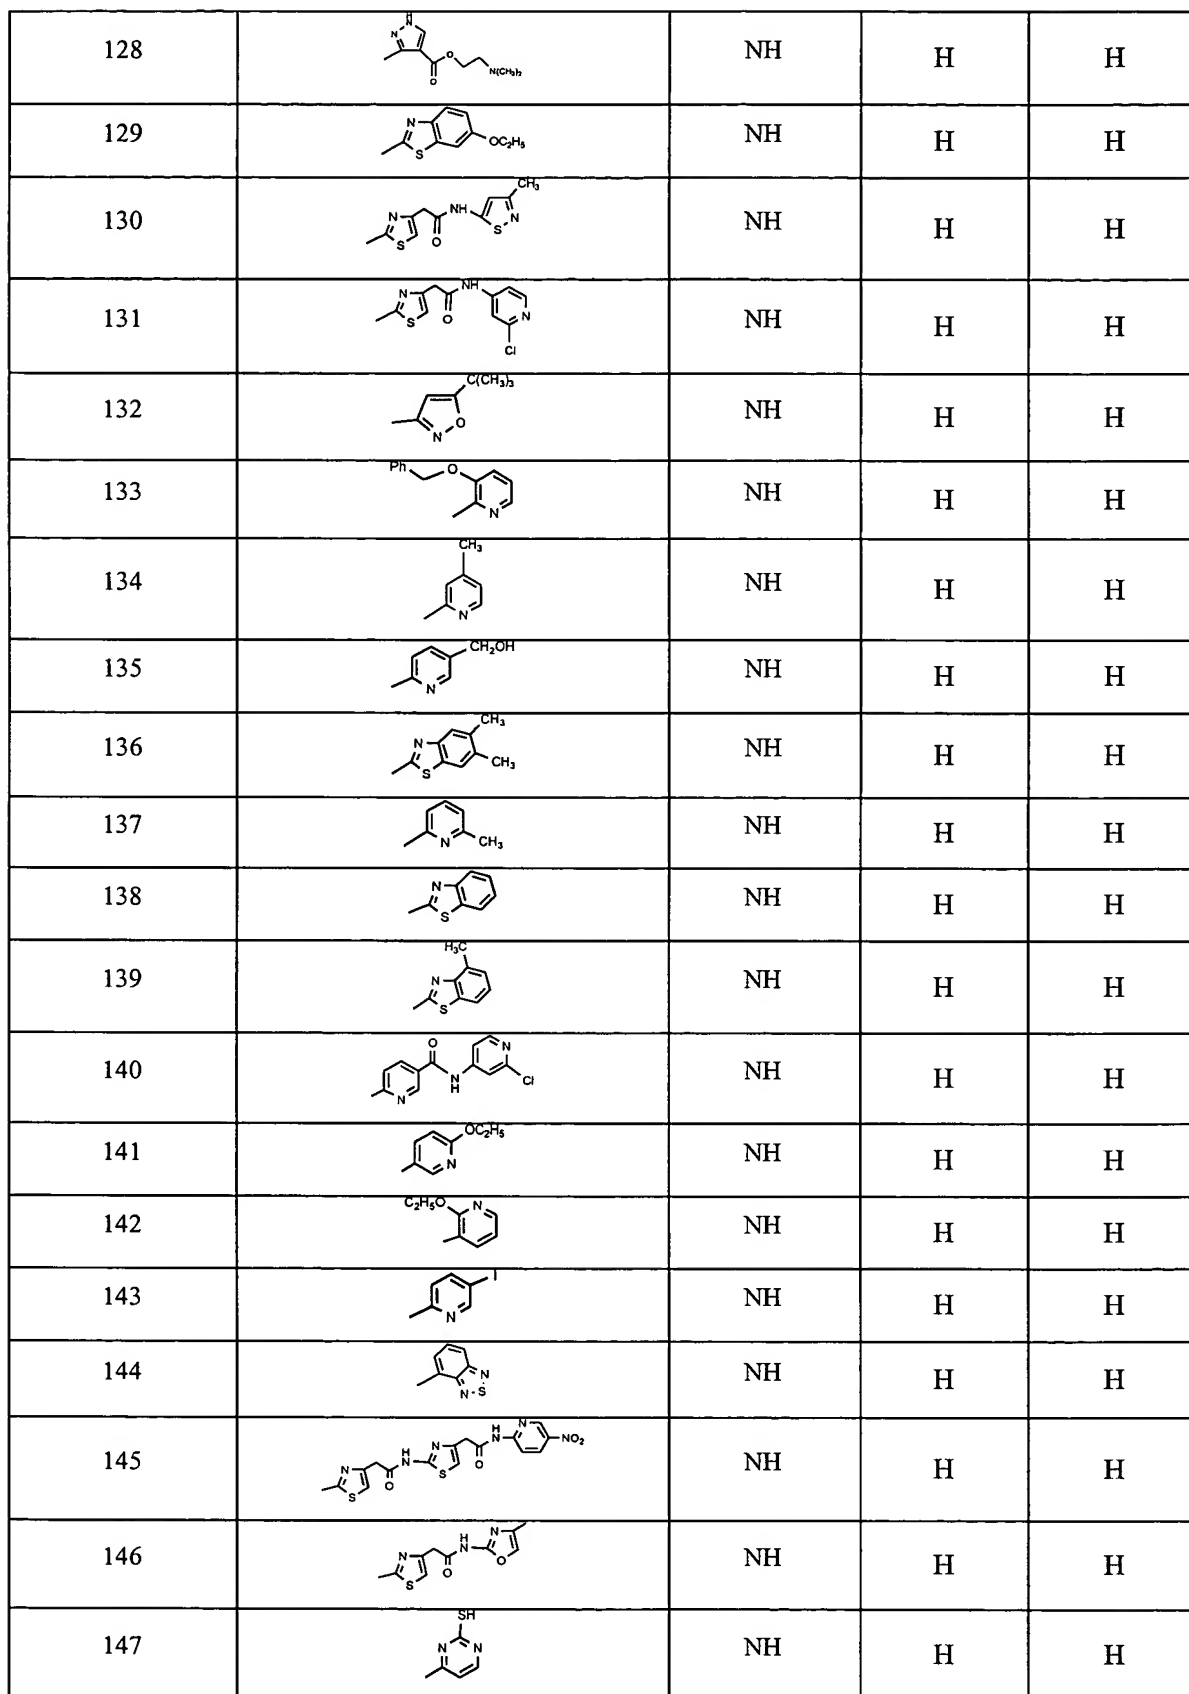 128 H N N O O N(CH₃)₂ NH H H
129 N S OC₂H₅ NH H H
130 N S O NH CH₃ S N NH H H
131 N S O NH N Cl NH H H
132 C(CH₃)₃ N O NH H H
133 Ph O N NH H H
134 CH₃ N NH H H
135 CH₂OH N NH H H
136 N S CH₃ CH₃ NH H H
137 N CH₃ NH H H
138 N S NH H H
139 H₃C N S NH H H
140 O N H N N Cl NH H H
141 OC₂H₅ N NH H H
142 C₂H₅O N NH H H
143 I N NH H H
144 N S N NH H H
145 N S O H N N S O H N N NO₂ NH H H
146 N S O H N N O NH H H
147 SH N N NH H H